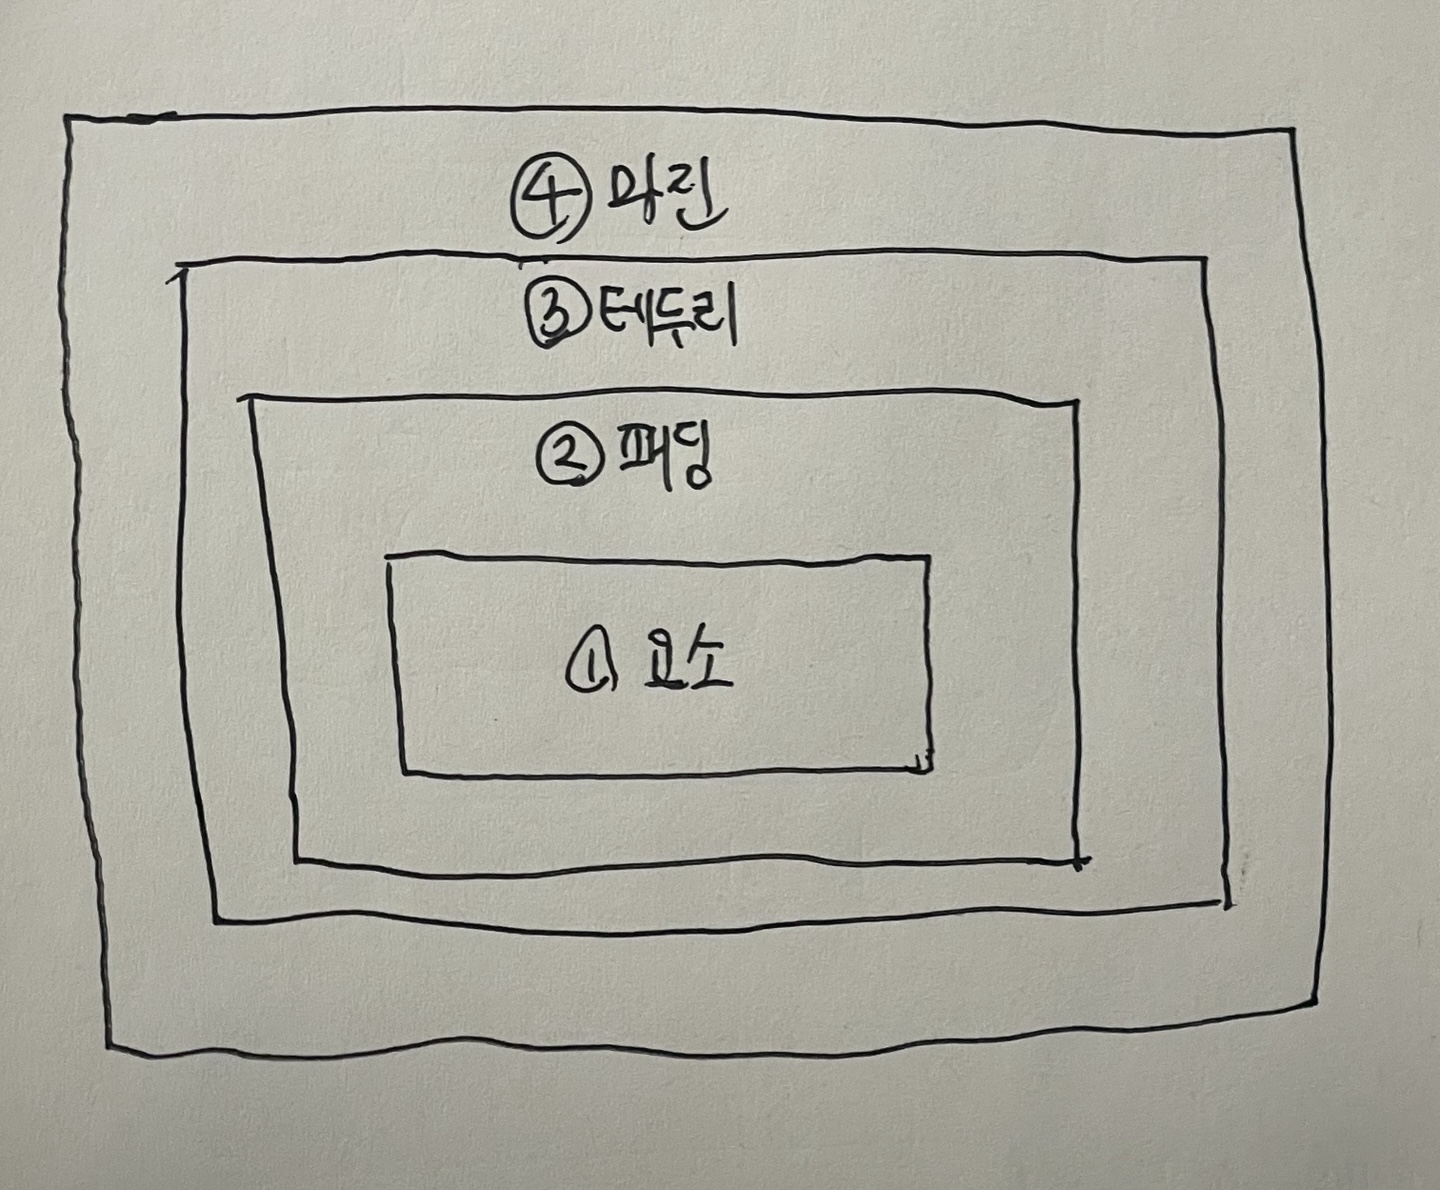 ④ 마진
③ 테두리
② 패딩
① 요소